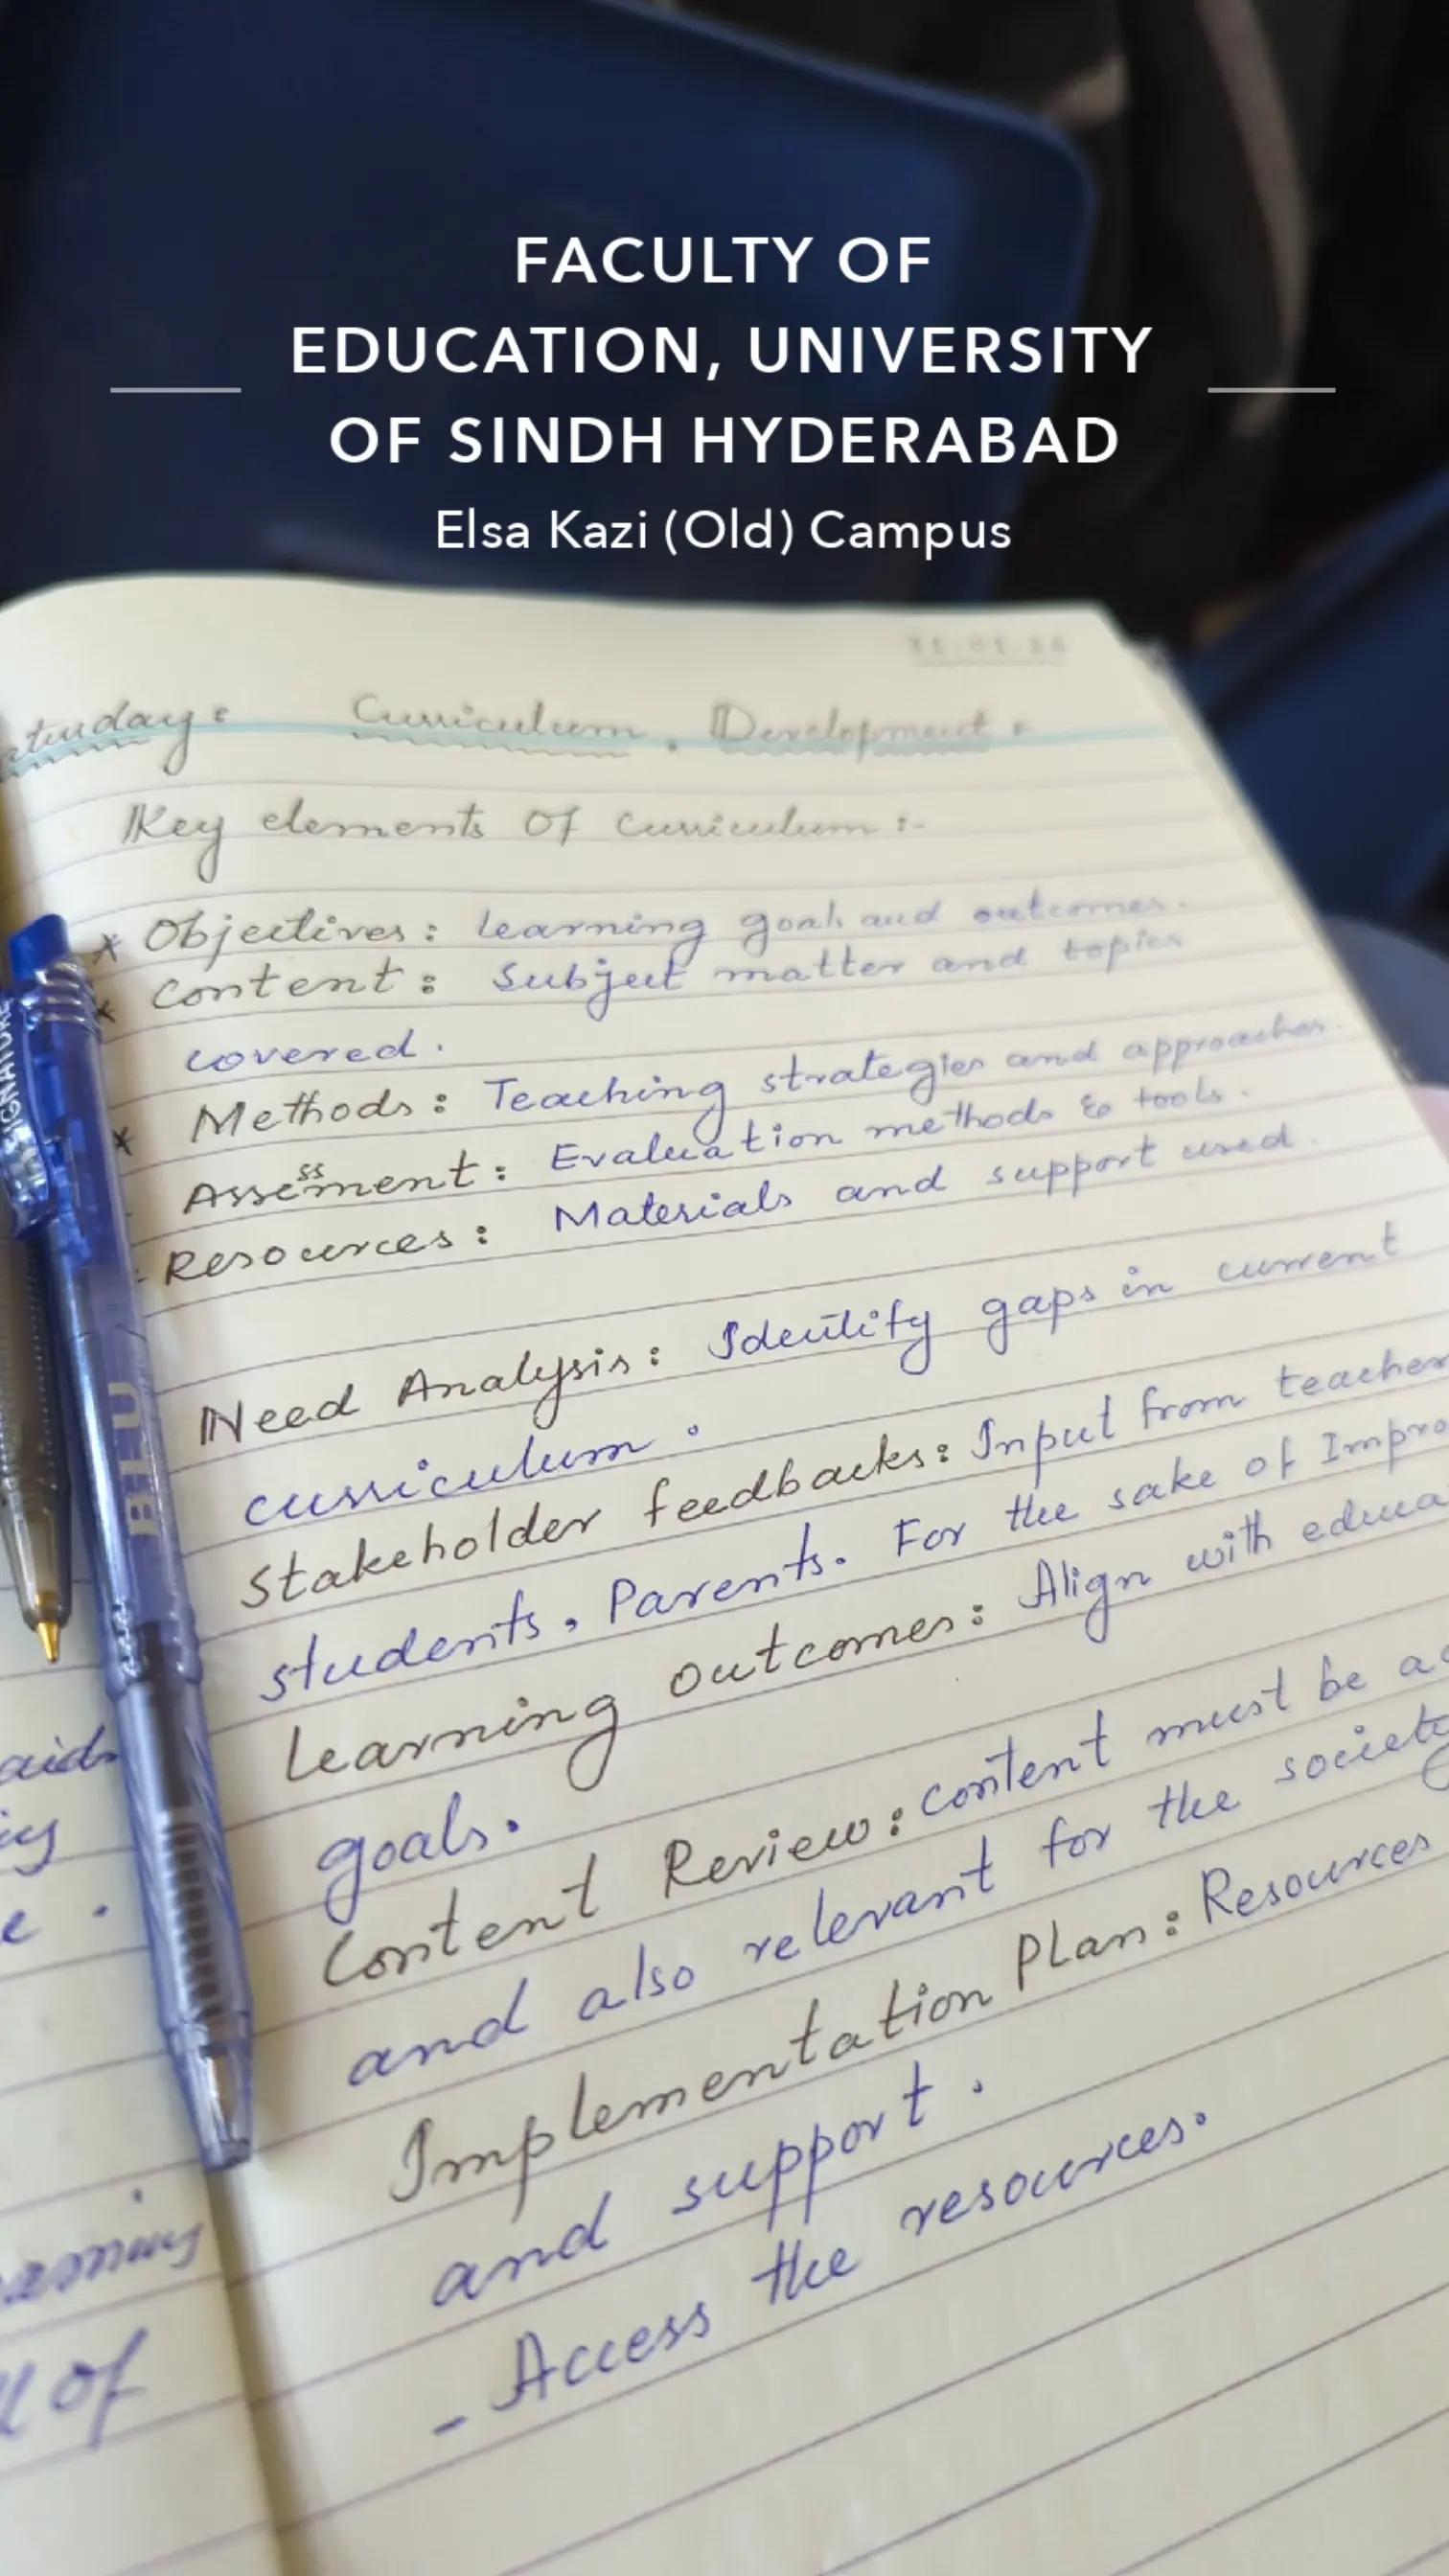 FACULTY OF
EDUCATION, UNIVERSITY
OF SINDH HYDERABAD
Elsa Kazi (Old) Campus
Curriculum. Development:
Key elements of curriculum:-
* Objectives: learning goals and outcomes.
* Content: Subject matter and topics
covered.
* Methods: Teaching strategies and approaches.
Assesment: Evaluation methods & tools.
ss
Resources: Materials and support used.
Need Analysis: Identify gaps in current
curriculum.
Stakeholder feedbacks: Input from
students, Parents. For the sake of
learning outcomes: Align with
goals.
Content Review: content must be
and also relevant for the society
Implementation Plan: Resources
and support.
- Access the resources.
aids
e.
of
BLU